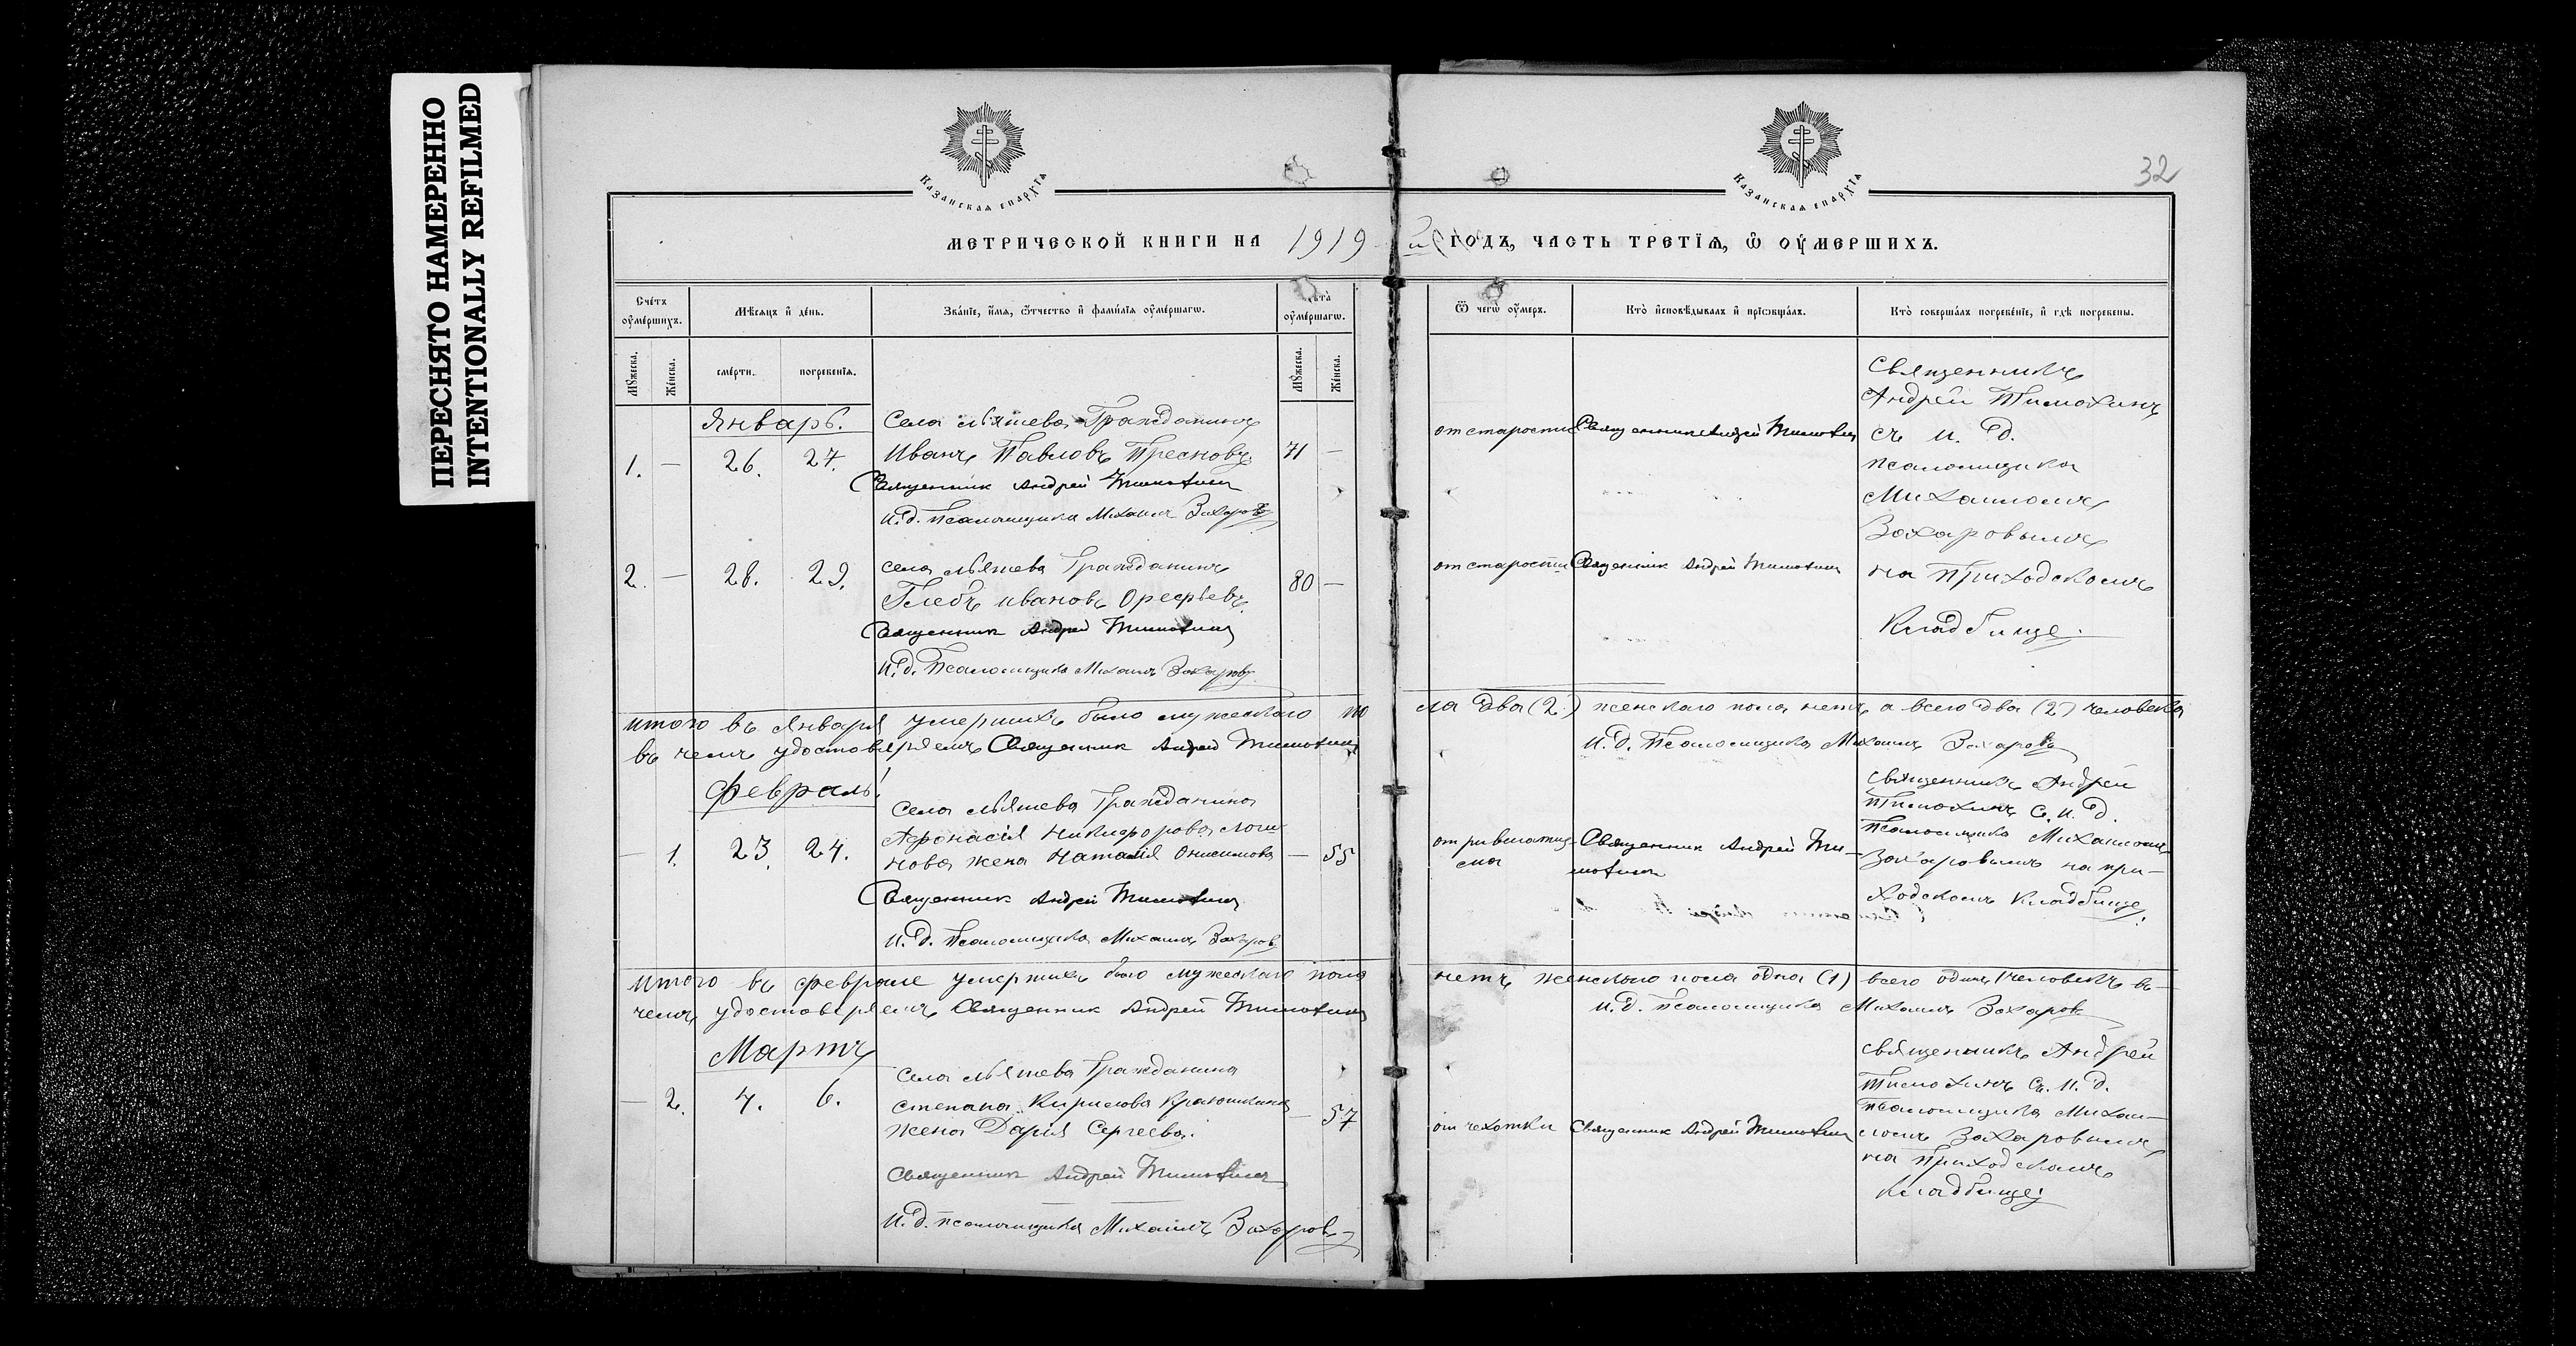 ПЕРЕСНЯТО НАМЕРЕННО
INTENTIONALLY REFILMED
Казанская епархія
Казанская епархія
32
МЕТРИЧЕСКОЙ КНИГИ НА 1919 й ГОДЪ, ЧАСТЬ ТРЕТІЯ, Ѿ ОУМЕРШИХЪ.
Счетъ оумершихъ.
Мѣсяцъ и день.
Званіе, имя, отчество и фамилія оумершагѡ.
Лѣта оумершагѡ.
Ѿ чегѡ оумеръ.
Кто исповѣдывалъ и пріѡбщалъ.
Кто совершалъ погребеніе, и гдѣ погребены.
Мужеска.
Женска.
смерти.
погребенія.
Мужеска.
Женска.
Январь.
1. — 26. 27.
Села Гражданинъ
Иванъ Павловъ Пресновъ
Священник Андрей Тимохин
И.д. Псаломщика Михаилъ Захаровъ
71 —
от старости
Священник Андрей Тимохин
Священникъ
Андрей Тимохинъ
съ И. д.
псаломщика
Михаиломъ
Захаровымъ
на приходскомъ
Кладбище.
2. — 28. 29.
села Гражданинъ
Глебъ Ивановъ
Священник Андрей Тимохин
И.д. Псаломщика Михаилъ Захаровъ
80 —
от старости
Священник Андрей Тимохин
итого въ Январѣ умершихъ было мужескаго по ла два (2) женскаго пола нетъ а всего два (2) человека
въ чемъ удостоверяемъ Священник Андрей Тимохин И.д. Псаломщика Михаилъ Захаровъ
Февраль!
— 1. 23. 24.
Села Гражданина
Афонасія Никифорова
нова жена Наталія Онисимова
Священник Андрей Тимохин
И.д. Псаломщика Михаилъ Захаровъ
— 55
от ривматиз-
ма
Священник Андрей Ти-
мохин
священникъ Андрей
Тимохинъ с. И.д.
Псаломщика Михаиломъ
Захаровымъ на при-
ходскомъ Кладбище.
итого въ феврале умершихъ было мужескаго пола нетъ женскаго пола одна (1) всего одинъ человекъ въ
чемъ удостоверяемъ Священник Андрей Тимохин И.д. Псаломщика Михаилъ Захаровъ
Мартъ
— 2. 4. 6.
Села Гражданина
Степана Кирилова
жена Дарія Сергеева.
Священник Андрей Тимохин
И.д. псаломщика Михаилъ Захаровъ
— 57
от чехотки
Священник Андрей Тимохин
священникъ Андрей
Тимохинъ съ. И.д.
псаломщика Михаи-
ломъ Захаровымъ
на приходскомъ
кладбище.